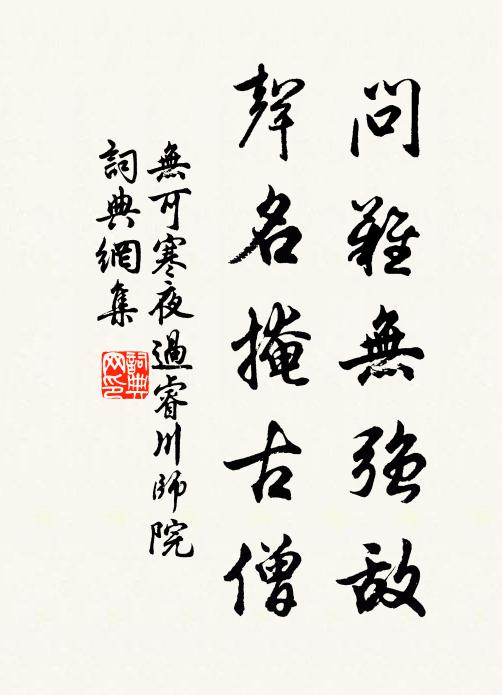 問難無強敵
聲名掩古僧
無可寒夜過睿川師院
詞典網集
詞典
网印